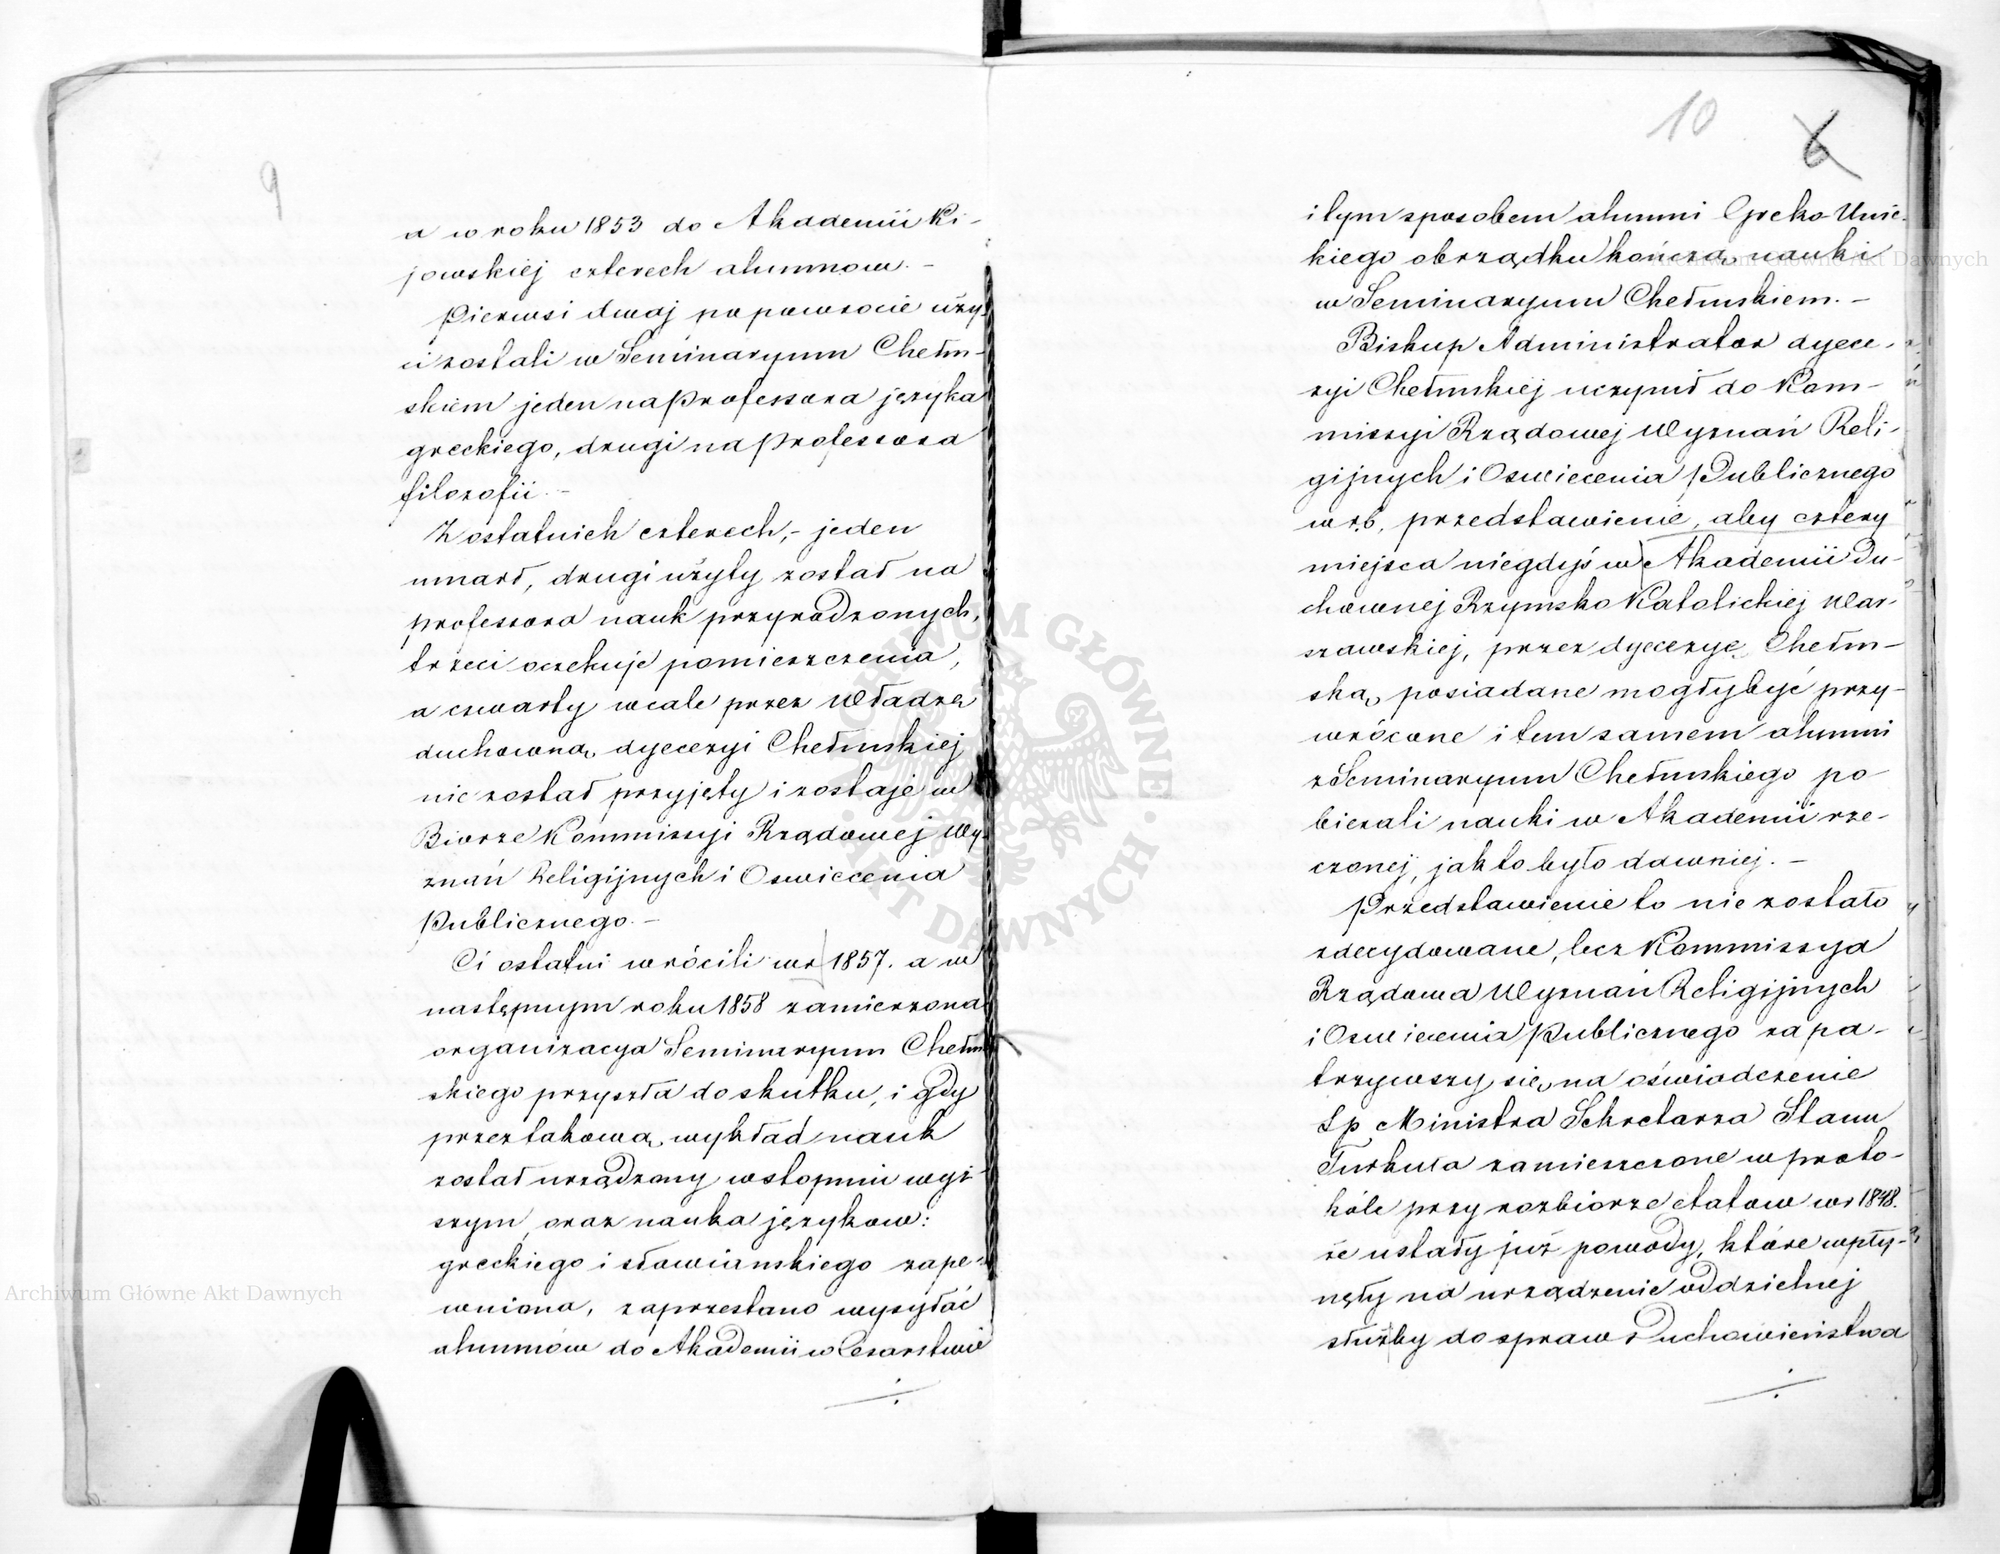 9
a w roku 1853 do Akademii Ki-
jowskiéj czterech alumnow.-
Pierwsi dwaj po powrocie uży-
ci zostali w Seminaryum Chełm-
skiem jeden na professora języka
greckiego, drugi na professora
filozofii.-
Z ostatnich czterech,- jeden
umarł, drugi użyty został na
professora nauk przyrodzonych,
trzeci oczekuje pomieszczenia,
a czwarty wcale przez Władzę
duchowną dyecezyi Chełmskiej
nie został przyjęty i zostaje w
Biorze Kommissyi Rządowej Wy-
znań Religijnych i Oswiecenia
Publicznego.-
Ci ostatni wrócili w r 1857. a w
następnym roku 1858 zamierzona
organizacya Seminaryum Chełm
skiego przyszła do skutku, i gdy
przez takową wykład nauk
został urządzony w stopniu wyż
szym, oraz nauka języków:
greckiego i słowianskiego zape-
wniona, zaprzestano wysyłać
alumnów do Akademii w Cesarstwie
10 6
i tym sposobem alumni Greko-Unic-
kiego obrządku kończą nauki
w Seminaryum Chełmskiem.-
Biskup Administrator dyece-
zyi Chełmskiéj uczynił do Kom-
missyi Rządowej Wyznań Reli-
gijnych i Oswiecenia Publicznego
w r.b. przedstawienie, aby cztery
miejsca niegdyś w Akademii Du-
chownej Rzymsko Katolickiej War-
szawskiej, przez dyecezyę Chełm-
ską posiadane mogły być przy-
wrócone i tem samem alumni
z Seminaryum Chełmskiego po
bierali nauki w Akademii rze-
czonej, jak to było dawniej.-
Przedstawienie to nie zostało
zdecydowane, lecz Kommissya
Rządowa Wyznań Religijnych
i Oswiecenia Publicznego zapa-
trzywszy się na oświadczenie
Sp Ministra Sekretarza Stanu
Turkuła zamieszczone w proto-
kóle przy rozbiorze etatow w r 1848.
że ustały już powody, które wpły-
nęły na urządzenie oddzielnej
służby do spraw Duchowieństwa
ARCHIWUM GŁÓWNE AKT DAWNYCH
Archiwum Główne Akt Dawnych
Archiwum Główne Akt Dawnych